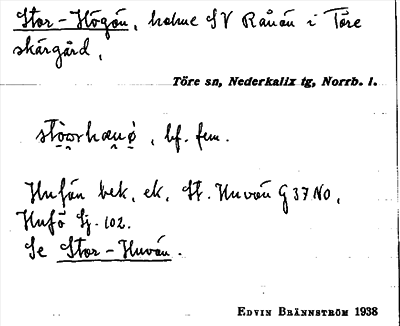 Stor-Högön, holme SV Rånön i Töre
skärgård.
Töre sn, Nederkalix tg, Norrb. l.
bf. fem.
Hufön bek. ek. St. Huvön G 37 NO.
Hufö Sj. 102.
Se Stor-Huvön.
EDVIN BRÄNNSTRÖM 1938